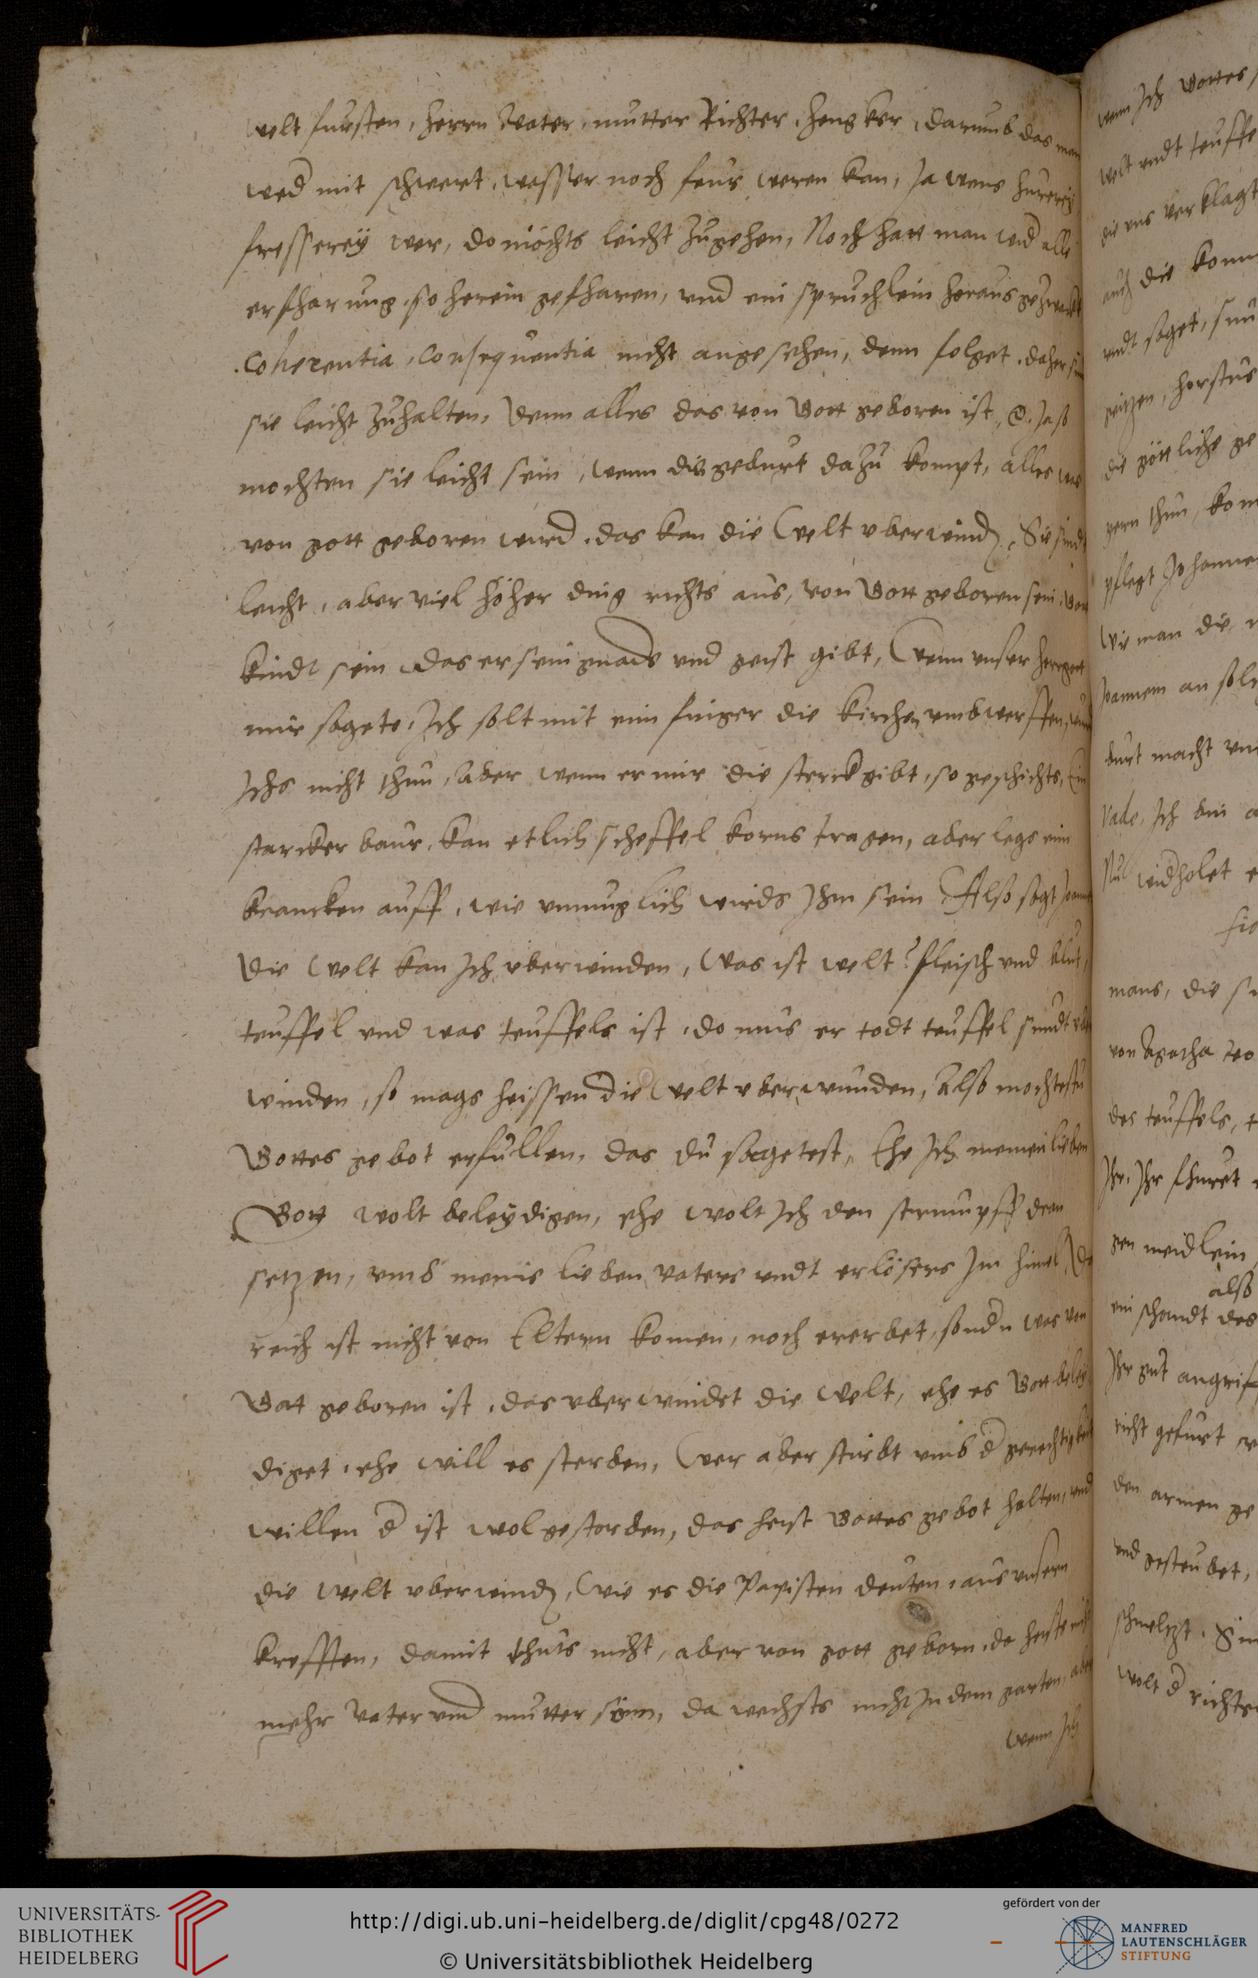 welt fursten, herrn Vater, mutter Richter, hengker, darumb das man
wed mit schwert, wasser noch feur weren kan, Ja wens hurerej
fresserey wer, do mochts leicht zugehen, Noch hatt man wid alle
erfharung, so herein gefharen, vnd ein spruchlein heraus gezwackt
Coherentia, Consequentia nicht angesehen, denn folget, daher sin
sie leicht zuhalten, Denn alles das von Gott geboren ist, Ja so
mochten sie leicht sein, wenn die geburt dazu kompt, alles was
von gott geboren wird, das kan die Welt vberwind, Sie sind
leicht, aber viel höher ding richts aus, von Gott geboren sein,
kindt sein das er sein gnade vnd geist gibt, Wenn vnser herrgott
mir sagete, Ich solt mit eim finger die kirchen vmbwerffen,
Ichs nicht thun, Aber wenn er mir die sterck gibt, so geschichts, Ein
starcker baur, kan etlich scheffel korns tragen, aber legs eim
krancken auff, wie vnmuglich wirds Ihm sein Also sagt
Die Welt kan Ich vberwinden, Was ist welt? fleisch vnd blut,
teuffel vnd was teuffels ist, do mus er todt teuffel sundt
winden, so mags heissen die Welt vberwunden, Also mochtestu
Gottes gebot erfullen, das du sagetest, Ehe Ich meinen lieben
Gott wolt beleydigen, ehe wolt Ich den strumpff dran
setzen, vmb meins lieben vaters vndt erlösers Im himel,
reich ist nicht von Eltern komen, noch ererbet, sondn was von
Gott geboren ist, das vberwindet die Welt, ehe es Gott beley
diget, ehe will es sterben, Wer aber stirbt vmb d gerechtigkeit
willen d ist wol gestorben, das heist Gottes gebot halten, vnd
die Welt vberwind, Wie es die Papisten deuten, aus vnsern
krefften, damit thuts nicht, aber von gott geborn, do heists nicht
mehr Vater vnd mutter sein, da wechsts nicht In dem garten, aber
wenn Ich
wenn Ich Gottes
welt vndt teuffe
die vns verklagt
auch die komm
vndt saget,
geitzen,
die göttliche ge
gern thun, kom
pflegt Johannes
Wie man die
Joannem an
burt macht vnd
Vade, Ich bin
widholet
mans, die
von Agatha
des teuffels,
Ihr, Ihr fhuret
gen meidlein
also
ein schandt des
Ihr gut angrif
nicht gefurt
den armen ge
vnd gesteubet,
schmeltzt.
wolt d richte
UNIVERSITÄTS-
BIBLIOTHEK
HEIDELBERG
http://digi.ub.uni-heidelberg.de/diglit/cpg48/0272
© Universitätsbibliothek Heidelberg
gefördert von der
MANFRED
LAUTENSCHLÄGER
STIFTUNG